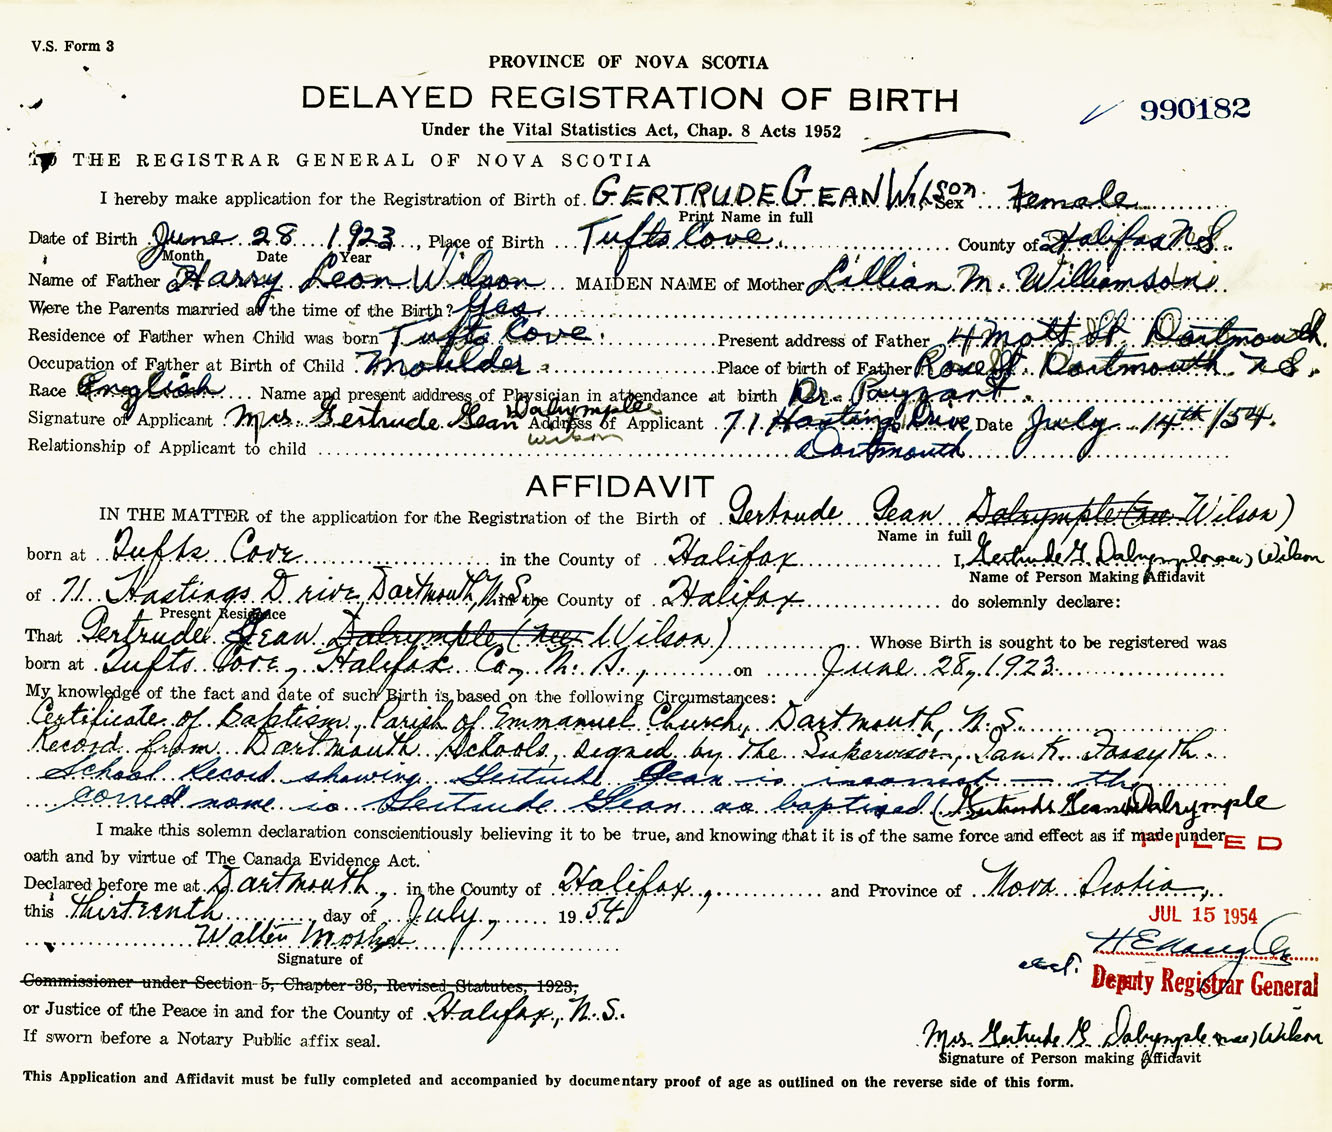 V.S. Form 3
PROVINCE OF NOVA SCOTIA
DELAYED REGISTRATION OF BIRTH
990182
Under the Vital Statistics Act, Chap. 8 Acts 1952
TO THE REGISTRAR GENERAL OF NOVA SCOTIA
I hereby make application for the Registration of Birth of GERTRUDE GEAN WILSON Sex Female
Print Name in full
Date of Birth June 28 1923, Place of Birth Tufts Cove. County of Halifax N.S.
Month Date Year
Name of Father Harry Leon Wilson MAIDEN NAME of Mother Lillian M. Williamson
Were the Parents married at the time of the Birth? Yes
Residence of Father when Child was born Tufts Cove. Present address of Father 4 Mott St. Dartmouth.
Occupation of Father at Birth of Child Moulder. Place of birth of Father Rose St. Dartmouth N.S.
Race English Name and present address of Physician in attendance at birth Dr. Payzant.
Signature of Applicant Mrs Gertrude Gean Dalrymple Address of Applicant 71 Hastings Drive Date July 14th/54.
wilson
Relationship of Applicant to child Dartmouth
AFFIDAVIT
IN THE MATTER of the application for the Registration of the Birth of Gertrude Gean Dalrymple (nee Wilson)
Name in full
born at Tufts Cove in the County of Halifax I, Gertrude G. Dalrymple (nee) Wilson
Name of Person Making Affidavit
of 71 Hastings Drive, Dartmouth, N.S., in the County of Halifax do solemnly declare:
Present Residence
That Gertrude Gean Dalrymple (nee Wilson) Whose Birth is sought to be registered was
born at Tufts Cove, Halifax Co., N.S., on June 28, 1923
My knowledge of the fact and date of such Birth is based on the following Circumstances:
Certificate of Baptism, Parish of Emmanuel Church, Dartmouth, N.S.
Record from Dartmouth Schools, signed by the Supervisor, Ian K. Forsyth
School Record showing Gertrude Jean is incorrect — the
correct name is Gertrude Gean as baptised (Gertrude Gean Dalrymple
I make this solemn declaration conscientiously believing it to be true, and knowing that it is of the same force and effect as if made under
FILED
oath and by virtue of The Canada Evidence Act.
Declared before me at Dartmouth, in the County of Halifax, and Province of Nova Scotia,
this thirteenth day of July, 1954
JUL 15 1954
Walter Mosher
Signature of
act. Deputy Registrar General
Commissioner under Section 5, Chapter 38, Revised Statutes, 1923,
or Justice of the Peace in and for the County of Halifax, N.S.
Mrs. Gertrude G. Dalrymple (nee) Wilson
If sworn before a Notary Public affix seal.
Signature of Person making Affidavit
This Application and Affidavit must be fully completed and accompanied by documentary proof of age as outlined on the reverse side of this form.